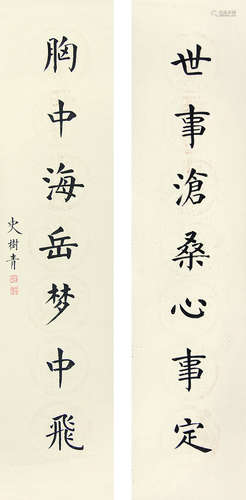 世事滄桑心事定
胸中海岳梦中飛
火樹青